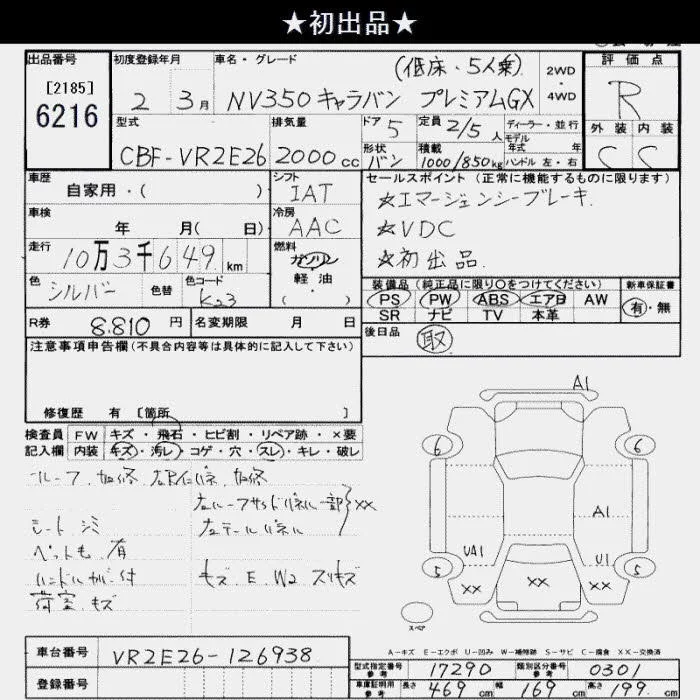 ★初出品★
出品番号
[2185]
6216
初度登録年月
2 3月
車名・グレード
(低床・5人乗)
NV350キャラバン プレミアムGX
2WD・4WD
評価点
R
外装 内装
C C
型式
CBF-VR2E26
排気量
2000cc
ドア
5
定員
2/5人
ディーラー・並行
モデル年式 年式
形状
バン
積載
1000/850kg
ハンドル 左・右
車歴
自家用・( )
シフト
IAT
セールスポイント(正常に機能するものに限ります)
☆エマージェンシーブレーキ
☆VDC
☆初出品
車検
年 月( 日)
冷房
AAC
走行
10万3千649km
燃料
ガソリン
軽油
( ・ )
色
シルバー
色替
色コード
K23
装備品(純正品に限り○をつけてください)
PS PW ABS エアB AW
SR ナビ TV 本革
新車保証書
有・無
R券
8.810円
名変期限 月 日
後日品
取
注意事項申告欄(不具合内容等は具体的に記入して下さい)
修復歴 有 [箇所 ]
検査員記入欄
FW キズ・飛石・ヒビ割・リペア跡・×要
内装 キズ・汚レ・コゲ・穴・スレ・キレ・破レ
ルーフ 加修
加修
左ルーフサイドパネル一部
××
左テールパネル
シート シミ
ペットも 有
ハンドルカバー付
キズ E W2 スリキズ
荷室 キズ
A1
6
6
A1
UA1
U1
5
5
××
××
××
スペア
A-キズ E-エクボ U-凹み W-補修跡 S-サビ C-腐食 ××-交換済
車台番号
VR2E26-126938
登録番号
型式指定番号 参考
17290
類別区分番号 参考
0301
車庫証明用 参考
長さ 469cm
幅 169cm
高さ 199cm